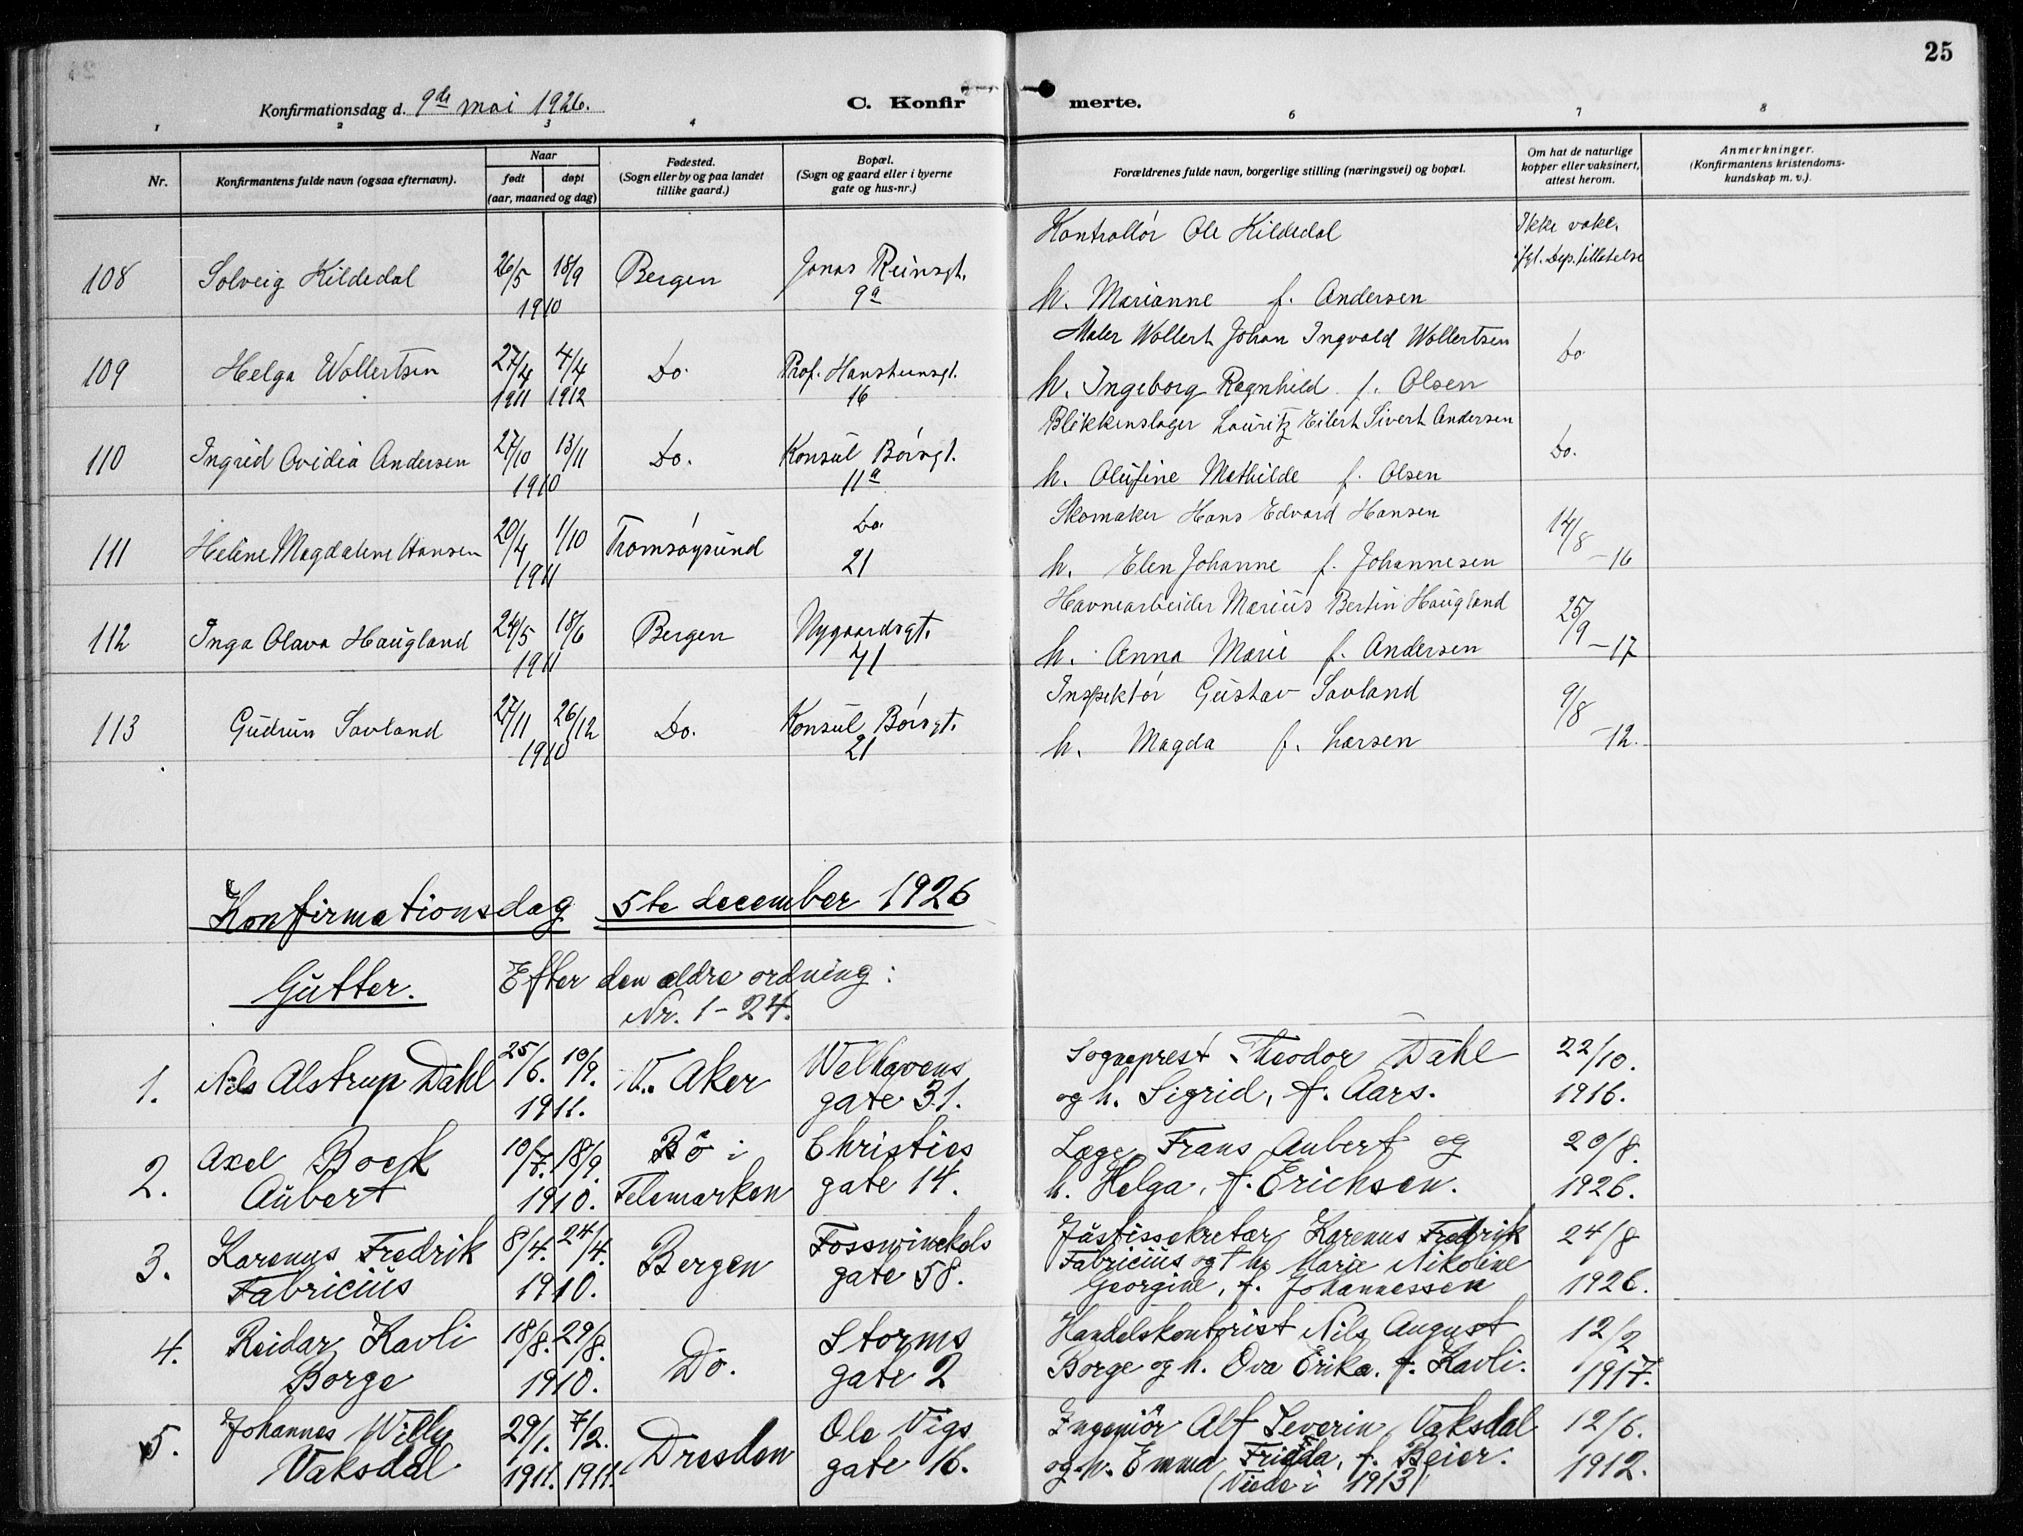 25
Konfirmationsdag d. 9de mai 1926.
C. Konfirmerte.
1 2 3 4 6 7 8
Nr.
Konfirmantens fulde navn (ogsaa efternavn).
Naar
født døpt
(aar, maaned og dag)
Fødested.
(Sogn eller by og paa landet
tillike gaard.)
Bopæl.
(Sogn og gaard eller i byerne
gate og hus-nr.)
Forældrenes fulde navn, borgerlige stilling (næringsvei) og bopæl.
Om hat de naturlige
kopper eller vaksinert,
attest herom.
Anmerkninger.
(Konfirmantens kristendoms-
kundskap m. v.).
108 Solveig Kildedal 26/5 18/9 1910 Bergen Jonas Reinsgt. 9a
Kontrollør Ole Kildedal
h. Marianne f. Andersen
Ikke vakc.
ifgl. Dep. tillatelse
109 Helga Wollertsen 27/4 1911 4/4 1912 Do. Prof. Hansteensgt. 16
Maler Wollert Johan Ingvald Wollertsen
h. Ingeborg Ragnhild f. Olsen
Do
110 Ingrid Ovidia Andersen 27/10 13/11 1910 Do. Konsul Børsgt. 11a
Blikkenslager Lauritz Eilert Sivert Andersen
h. Olufine Mathilde f. Olsen
Do.
111 Heline Magdalene Hansen 20/4 1/10 1911 Tromsøysund Do. 21
Skomaker Hans Edvard Hansen
h. Elen Johanne f. Johannesen
14/8 -16
112 Inga Olava Haugland 24/5 18/6 1911 Bergen Nygaardsgt. 71
Havnearbeider Marius Bertin Haugland
h. Anna Marie f. Andersen
25/9 -17
113 Gudrun Savland 27/11 26/12 1910 Do. Konsul Børsgt. 21
Inspektør Gustav Savland
h. Magda f. Larsen
9/8 -12.
Konfirmationsdag 5te december 1926
Gutter. Efter den ældre ordning:
Nr. 1-24.
1. Nils Alstrup Dahl 25/6. 10/9. 1911. V. Aker Welhavens gate 31.
Sogneprest Theodor Dahl
og h. Sigrid, f. Aars.
22/10. 1916.
2. Axel Boeck Aubert 10/7. 18/9. 1910. Bø i Telemarken Christies gate 14.
Læge Frans Aubert og
h. Helga, f. Erichsen.
20/8. 1926.
3. Karenus Fredrik Fabricius 8/4. 24/4. 1910. Bergen Fosswinckels gate 58.
Justissekretær Karenus Fredrik
Fabricius og † h. Marie Nikoline
Georgine, f. Johannessen
24/8 1926.
4. Reidar Kavli Borge 18/8. 29/8. 1910. Do. Storms gate 2
Handelskontorist Nils August
Borge og h. Ova Erika, f. Kavli.
12/2 1917.
5. Johannes Willy Vaksdal 29/1. 1911. 7/2. 1911. Dresden Ole Vigs gate 16.
Ingeniør Alf Severin Vaksdal
og h. Emma Fridda, f. Beier.
(Viede i 1913)
12/6. 1912.